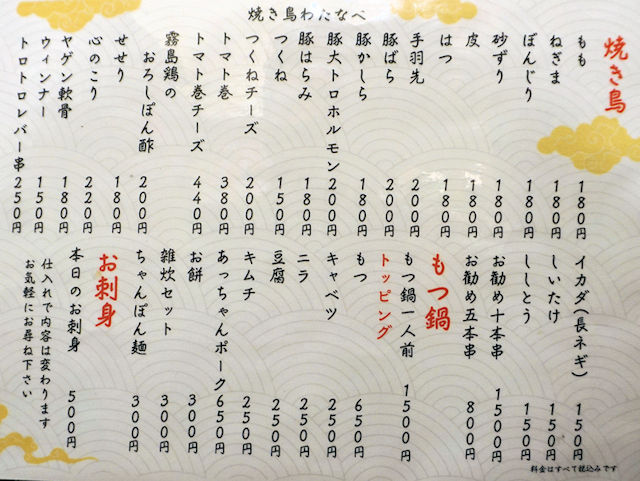 焼き鳥わたなべ
焼き鳥
もも 180円
ねぎま 180円
ぼんじり 180円
砂ずり 180円
皮 180円
はつ 180円
手羽先 200円
豚ばら 200円
豚かしら 180円
豚大トロホルモン 200円
豚はらみ 180円
つくね 150円
つくねチーズ 200円
トマト巻 380円
トマト巻チーズ 440円
霧島鶏の
おろしぽん酢 200円
せせり 180円
心のこり 220円
ヤゲン軟骨 180円
ウィンナー 150円
トロトロレバー串 250円
イカダ(長ネギ) 150円
しいたけ 150円
ししとう 150円
お勧め十本串 1500円
お勧め五本串 800円
もつ鍋
もつ鍋一人前 1500円
トッピング
もつ 650円
キャベツ 250円
ニラ 250円
豆腐 250円
キムチ 250円
あっちゃんポーク 650円
お餅 300円
雑炊セット 300円
ちゃんぽん麺 300円
お刺身
本日のお刺身 500円
仕入れで内容は変わります
お気軽にお尋ね下さい
料金はすべて税込みです